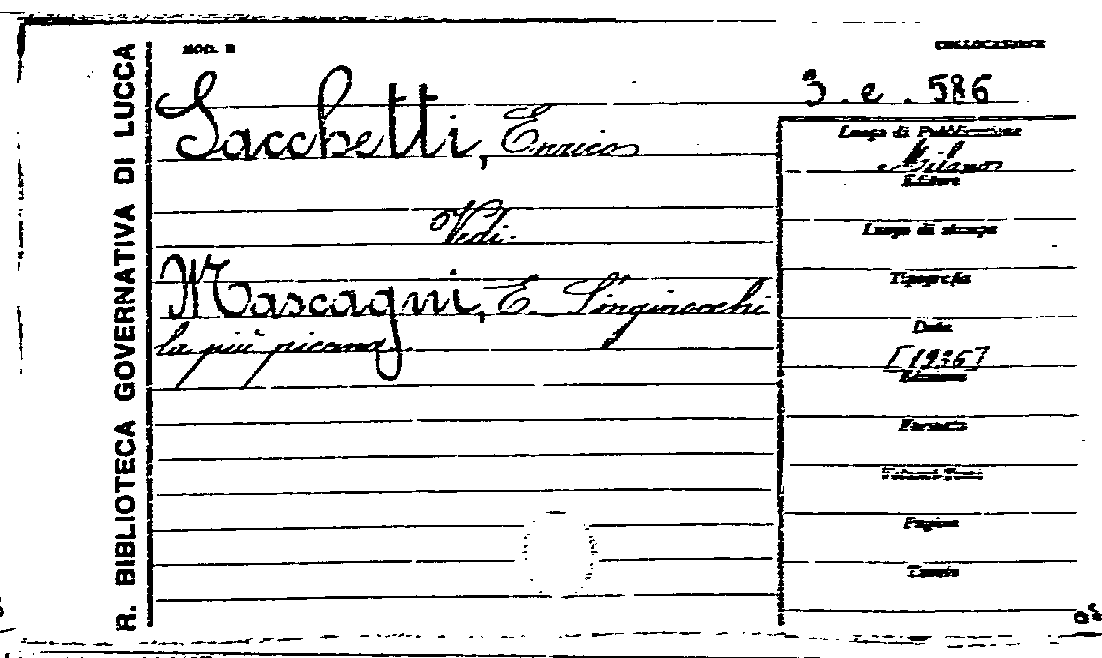 R. BIBLIOTECA GOVERNATIVA DI LUCCA
MOD. B
COLLOCAZIONE
3. e. 586
Sacchetti, Enrico
Vedi.
Mascagni, E. S'inginocchi
la più piccina.
Luogo di Pubblicazione
Milano
Editore
Luogo di stampa
Tipografia
Data
[1936]
Edizione
Formato
Pagine
Tavole